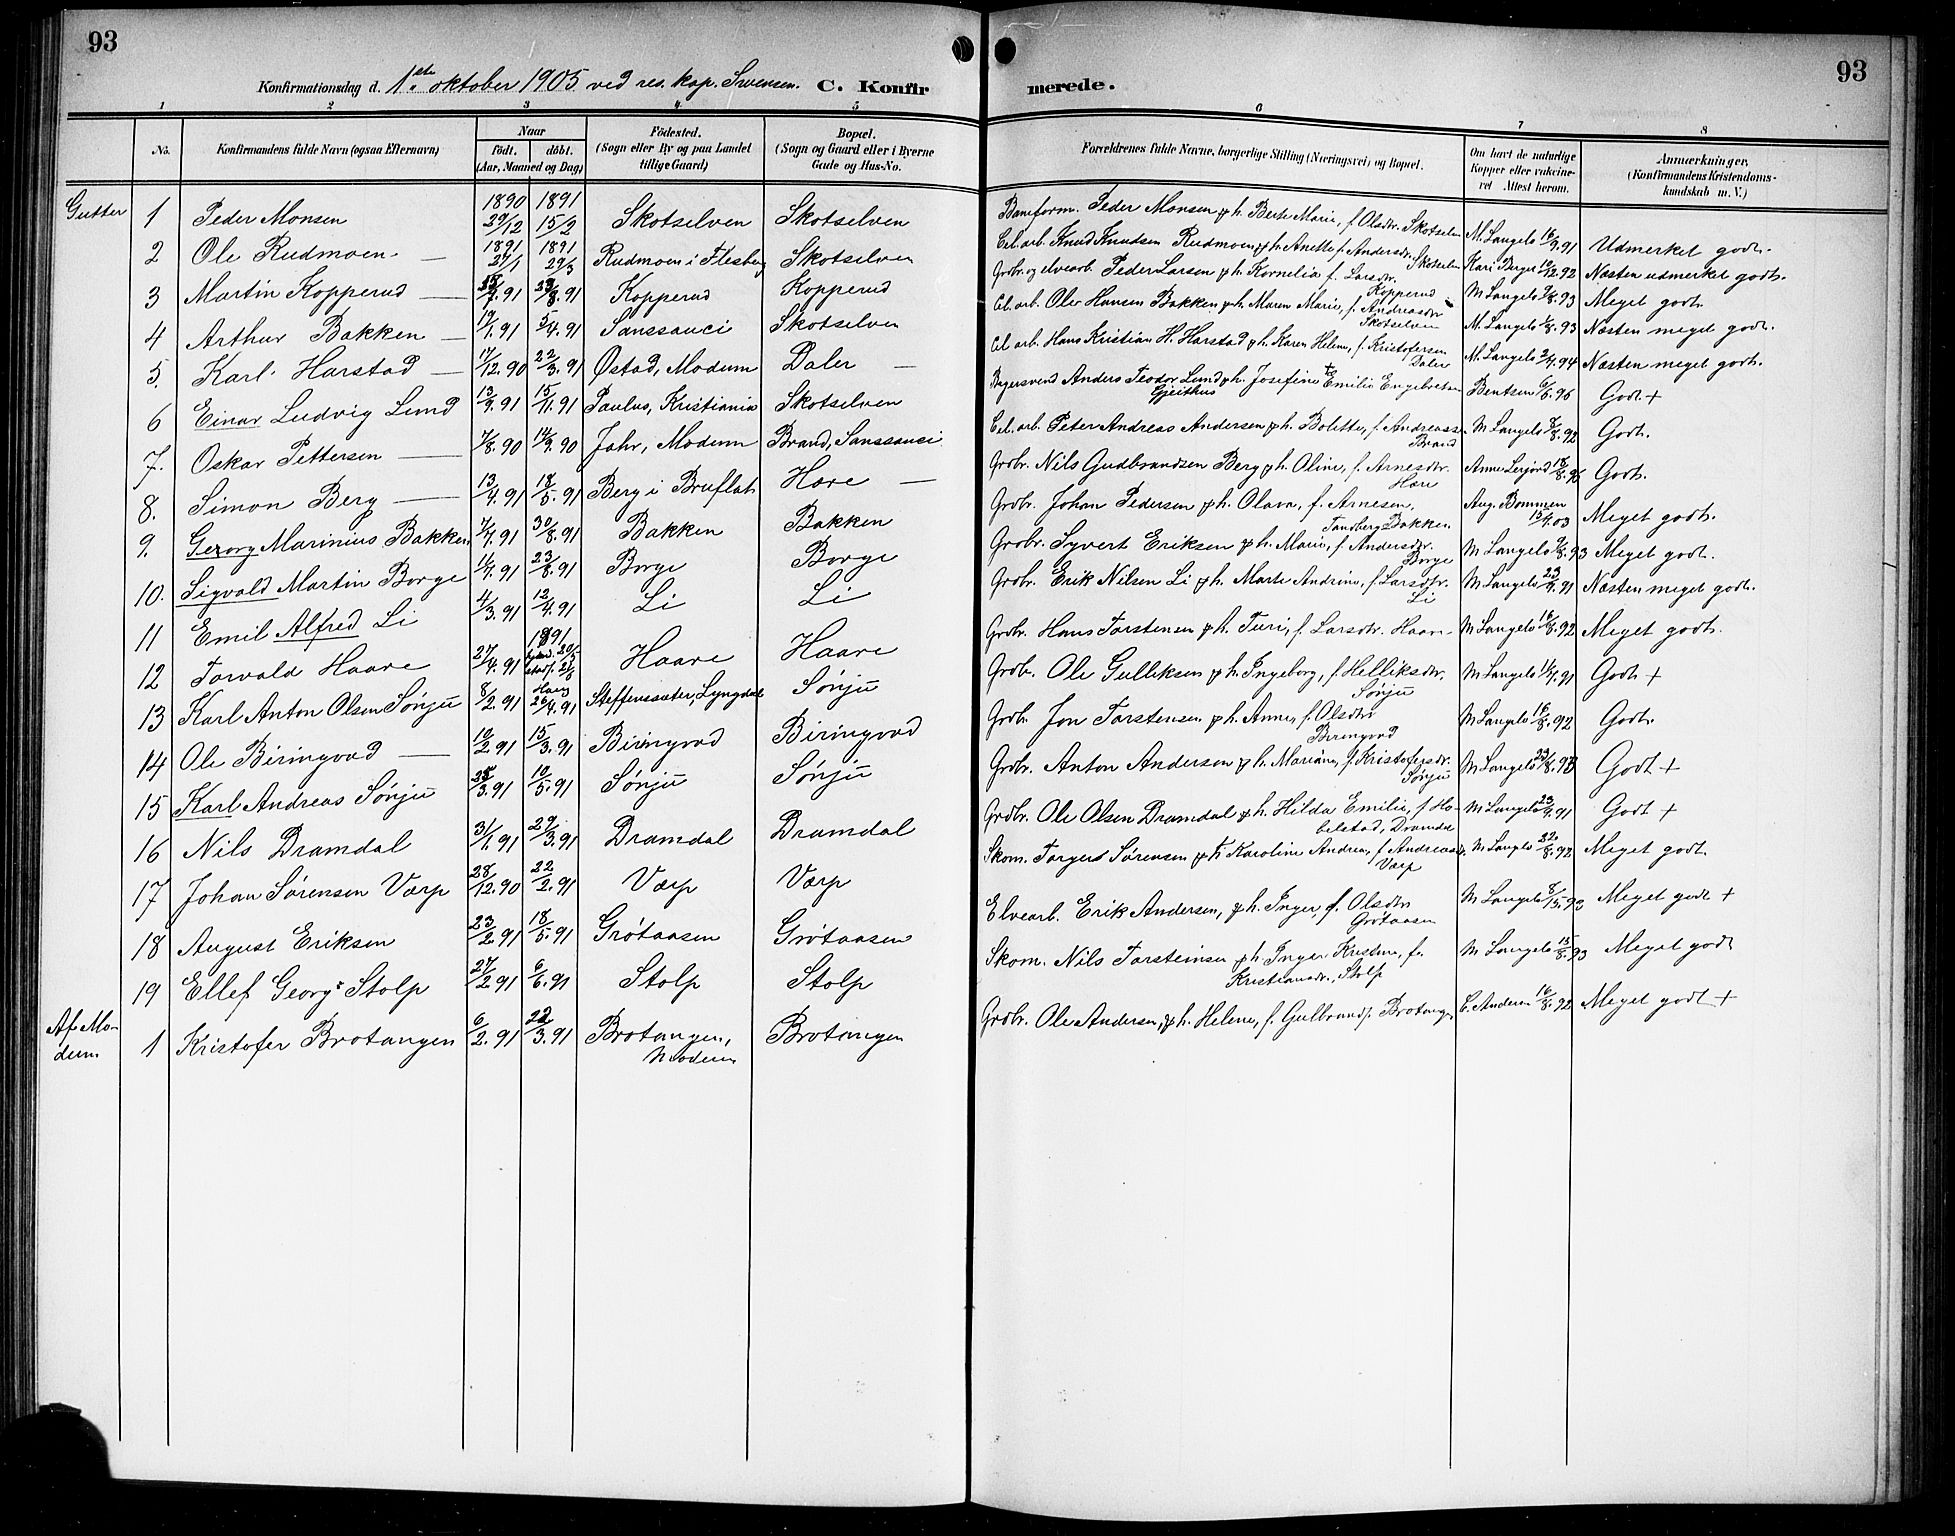 93
Konfirmationsdag d. 1ste oktober 1905 ved res. kap. Svensen. C. Konfirmerede. 93
1 2 3 4 5 6 7 8
No. Konfirmandens fulde Navn (ogsaa Efternavn) Naar født. døbt. (Aar, Maaned og Dag) Fødested. (Sogn eller By og paa Landet tillige Gaard) Bopæl. (Sogn og Gaard eller i Byerne Gade og Hus-No. Forældrenes fulde Navne, borgerlige Stilling (Næringsvei) og Bopæl. Om havt de naturlige Kopper eller vakcineret Attest herom. Anmærkninger, (Konfirmandens Kristendomskundskab m. V.)
Gutter 1 Peder Monsen 1890 29/12 1891 15/2 Skotselven Skotselven Baneform. Peder Monsen & h. Berte Marie, f. Olsdtr. Skotselven M. Langelo 16/9.91 Udmerket godt.
2 Ole Rudmoen — 1891 27/1 1891 29/3 Rudmoen i Flesberg Skotselven Cel. arb. Knud Knudsen Rudmoen & h. Anette, f. Andersdtr. Skotselven Kari Berger 12/12.92 Næsten udmerket godt.
3 Martin Kopperud — 7.91 23/8.91 Kopperud Kopperud Grdbr. og elvearb. Peder Larsen & h. Kornelia f. Larsdtr. Kopperud M Langelo 7/8.93 Meget godt.
4 Arthur Bakken — 19/1.91 5/4.91 Sanssouci Skotselven Cel. arb. Oler Hansen Bakken & h. Maren Marie, f. Andreasdtr Skotselven M. Langelo 7/8.93 Næsten meget godt.
5. Karl Harstad — 17/12.90 22/3.91 Østad, Modum Daler — Cel arb. Hans Kristian H. Harstad & h. Karen Helene, f. Kristofersen Daler M. Langelo 2/4.94 Næsten meget godt.
6 Einar Ludvig Lund 13/9.91 15/11.91 Paulus, Kristiania Skotselven Bagersvend Anders Teodor Lund & h. Josefine Emilie Engebretsen Gjeithus Bentsen 6/6.96 Godt +
7. Oskar Pettersen — 7/8.90 14/9.90 Jahr, Modum Brand, Sanssouci Cel. arb. Peter Andreas Andersen & h. Bolette, f. Andreassen Brand M Langelo 7/8.92 Godt.
8. Simon Berg — 13/4.91 18/5.91 Berg i Bruflat Høre — Grdbr. Nils Gudbrandsen Berg & h. Oline, f. Arnesdtr. Høre Anne Lerjord 18/8.95 Godt.
9. Georg Marinius Bakken 7/7.91 30/8.91 Bakken Bakken Grdbr. Johan Pedersen & h. Olava, f. Arnesen, Tandberg Bakken Aug. Bommen 15/7.03 Meget godt.
10. Sigvald Martin Borge 11/7.91 23/8.91 Borge Borge Grdbr. Syvert Eriksen & h. Marie, f. Andersdtr. Borge M Langelo 7/8.93 Meget godt.
11 Emil Alfred Li 4/3.91 12/4.91 Li Li Grdbr. Erik Nilsen Li & h. Marte Andrine, f. Larsdtr. Li M Langelo 23/9.91 Næsten meget godt.
12 Torvald Haare 27/4.91 1891 Haare Haare Grdbr. Hans Torstensen & h. Turi, f. Larsdtr. Haare M Langelo 16/8.92 Meget godt.
13 Karl Anton Olsen Sønju 8/2.91 26/4.91 Steffensæter, Lyngdal Sønju Grdb. Ole Gulliksen & h. Ingeborg, f. Helliksdtr. Sønju M Langelo 11/7.91 Godt +
14 Ole Biringvad — 10/2.91 15/3.91 Biringvad Biringvad Grdb. Jon Torstensen & h. Anne, f. Olsdtr Biringvad M Langelo 16/8.92 Godt.
15 Karl Andreas Sønju 3.91 10/5.91 Sønju Sønju Grdbr. Anton Andersen & h. Mariane, f. Kristofersdr. Sønju M Langelo 23/8.93 Godt +
16 Nils Dramdal 31/1.91 29/3.91 Dramdal Dramdal Grdbr. Ole Olsen Dramdal & h. Hilda Emilie, f. Habelstad, Dramdal M Langelo 23/9.91 Godt +
17 Johan Sørensen Værp 28/12.90 22/2.91 Værp Værp Skom. Torgers Sørensen & h. Karoline Andrea, f Andreasdtr. Værp M. Langelo 22/8.92 Meget godt.
18 August Eriksen 23/2.91 18/5.91 Grøtaasen Grøtaasen Elvearb. Erik Andersen, & h. Inger, f. Olsdtr Grøtaasen M Langelo 8/15.93 Meget godt +
19 Ellef Georg Stolp 27/2.91 6/6.91 Stolp Stolp Skom. Nils Torsteinsen & h. Inger Kristine, f. Kristiansdtr., Stolp M Langelo 15/8.93 Meget godt
Af Modum 1 Kristofer Brotangen 6/2.91 22/3.91 Brotangen, Modum Brotangen Grdbr. Ole Andersen, & h. Helene, f. Gulbrands. Brotangen C. Andersen 16/8.92 Meget godt +